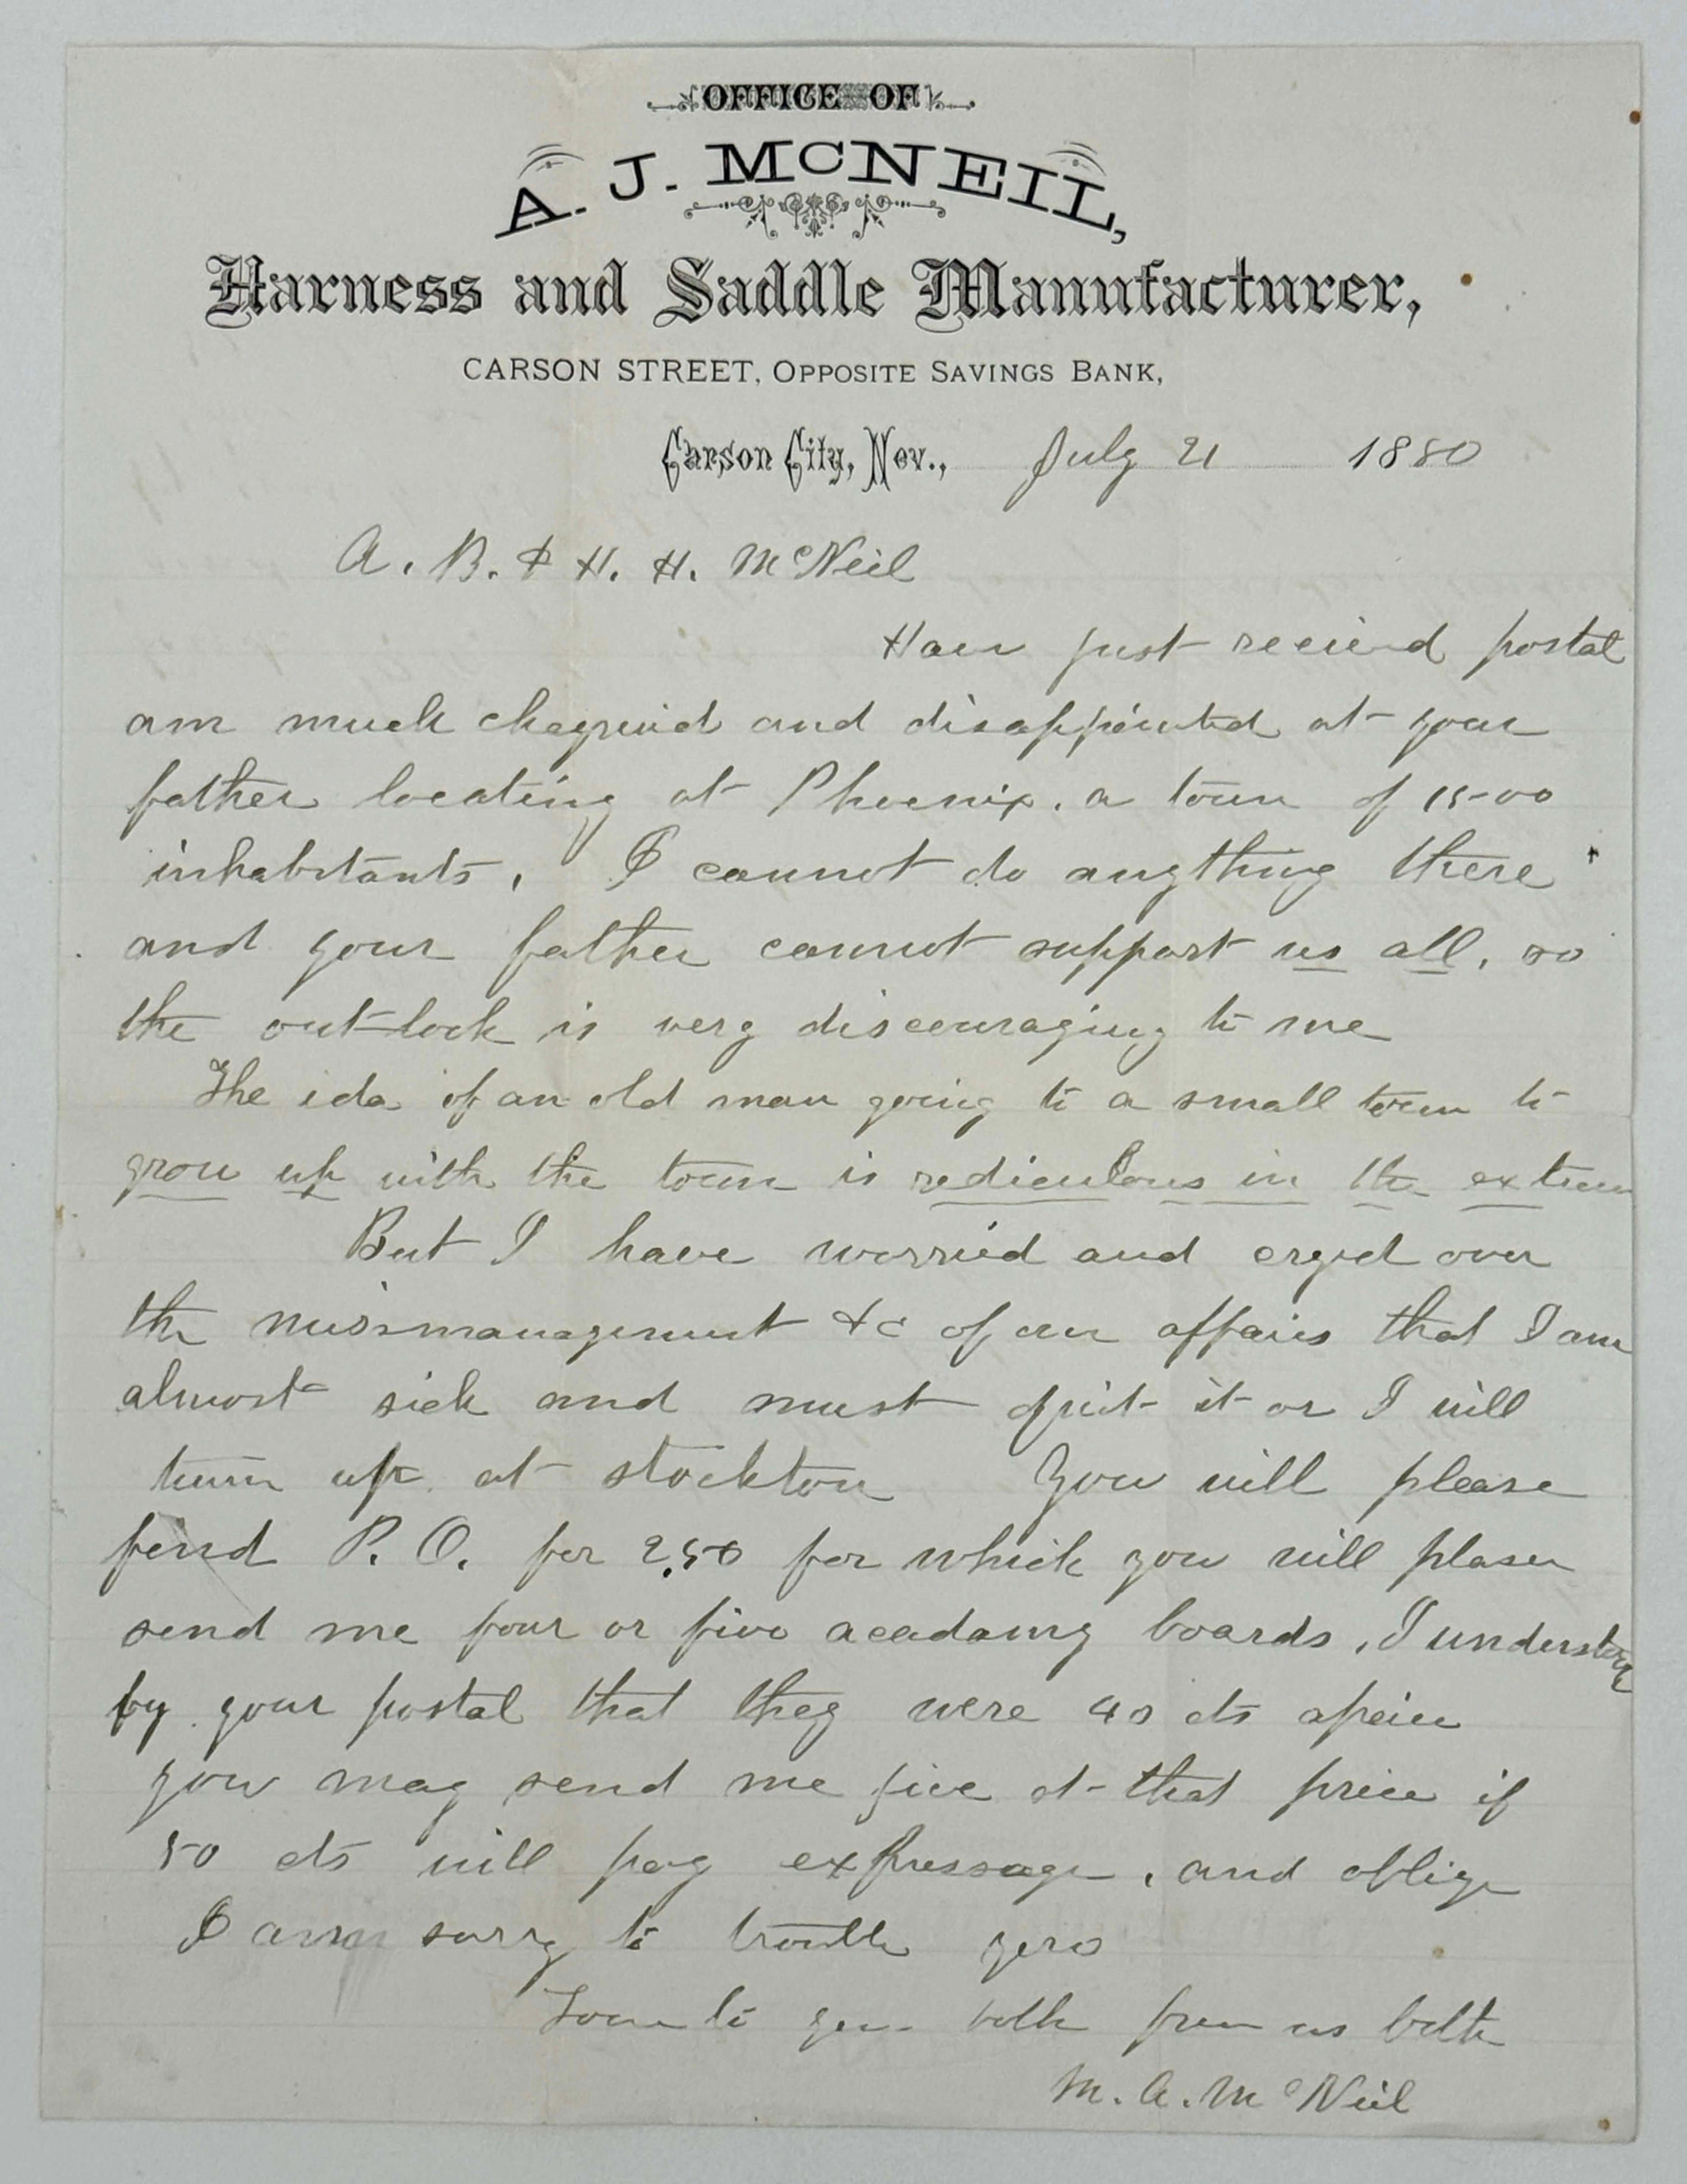 OFFICE OF
A. J. McNEIL,
Harness and Saddle Manufacturer,
CARSON STREET, OPPOSITE SAVINGS BANK,
Carson City, Nev., July 21 1880
A. B. & H. H. McNeil
Have just recievd postal
am much chagrined and disappointed at your
father locating at Phoenix. a town of 1500
inhabitants, I cannot do anything there
and your father cannot support us all, so
the out-look is very discouraging to me
The ida of an old man going to a small town to
grow up with the town is rediculous in the extreme
But I have worried and cryed over
the missmanagement &c of our affairs that I am
almost sick and must quit it or I will
turn up at stockton You will please
find P. O. for 2.50 for which you will please
send me four or five acadamy boards, I understand
by your postal that they were 40 cts apeice
you may send me five at that price if
50 cts will pay expressage, and oblige
I am sorry to trouble you
Love to you both from us both
M. A. McNeil